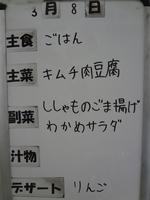 3月8日
主食 ごはん
主菜 キムチ肉豆腐
副菜 ししゃものごま揚げ
わかめサラダ
汁物
デザート りんご